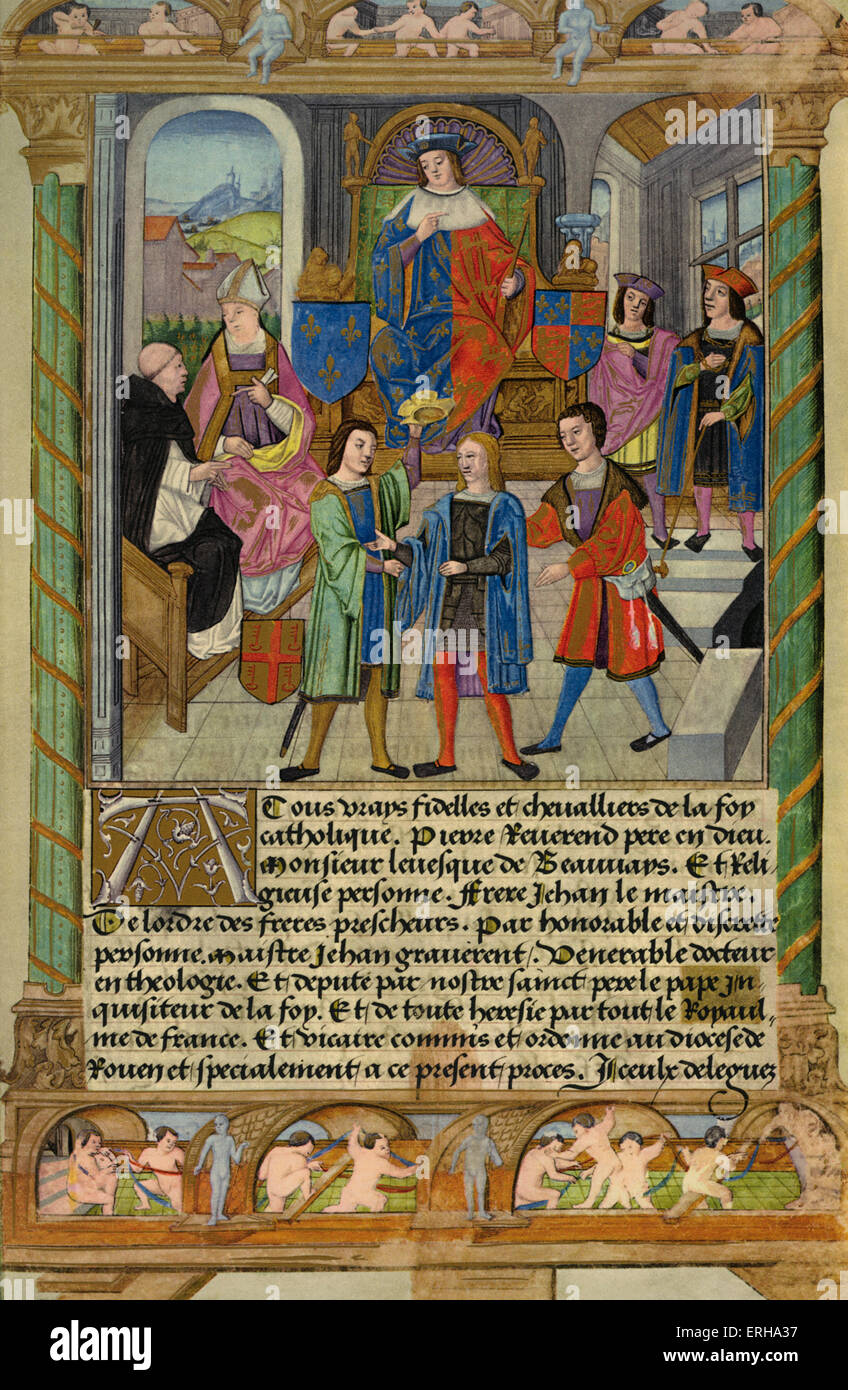 A Tous vrays fidelles et chevalliers de la foy
catholique. Pierre Reverend pere en dieu.
Monsieur levesque de Beauvays. Et Reli-
gieuse personne. Frere Jehan le maistre.
De lordre des freres prescheurs. Par honorable et discrette
personne. Maistre Jehan graverent. Venerable docteur
en theologie. Et depute par nostre sainct pere le pape In-
quisiteur de la foy. Et de toute heresie par tout le Royaul-
me de france. Et vicaire commis et ordonne au diocese de
Rouen et specialement a ce present proces. Iceulx deleguez
alamy
Image ID: ERHA37
www.alamy.com